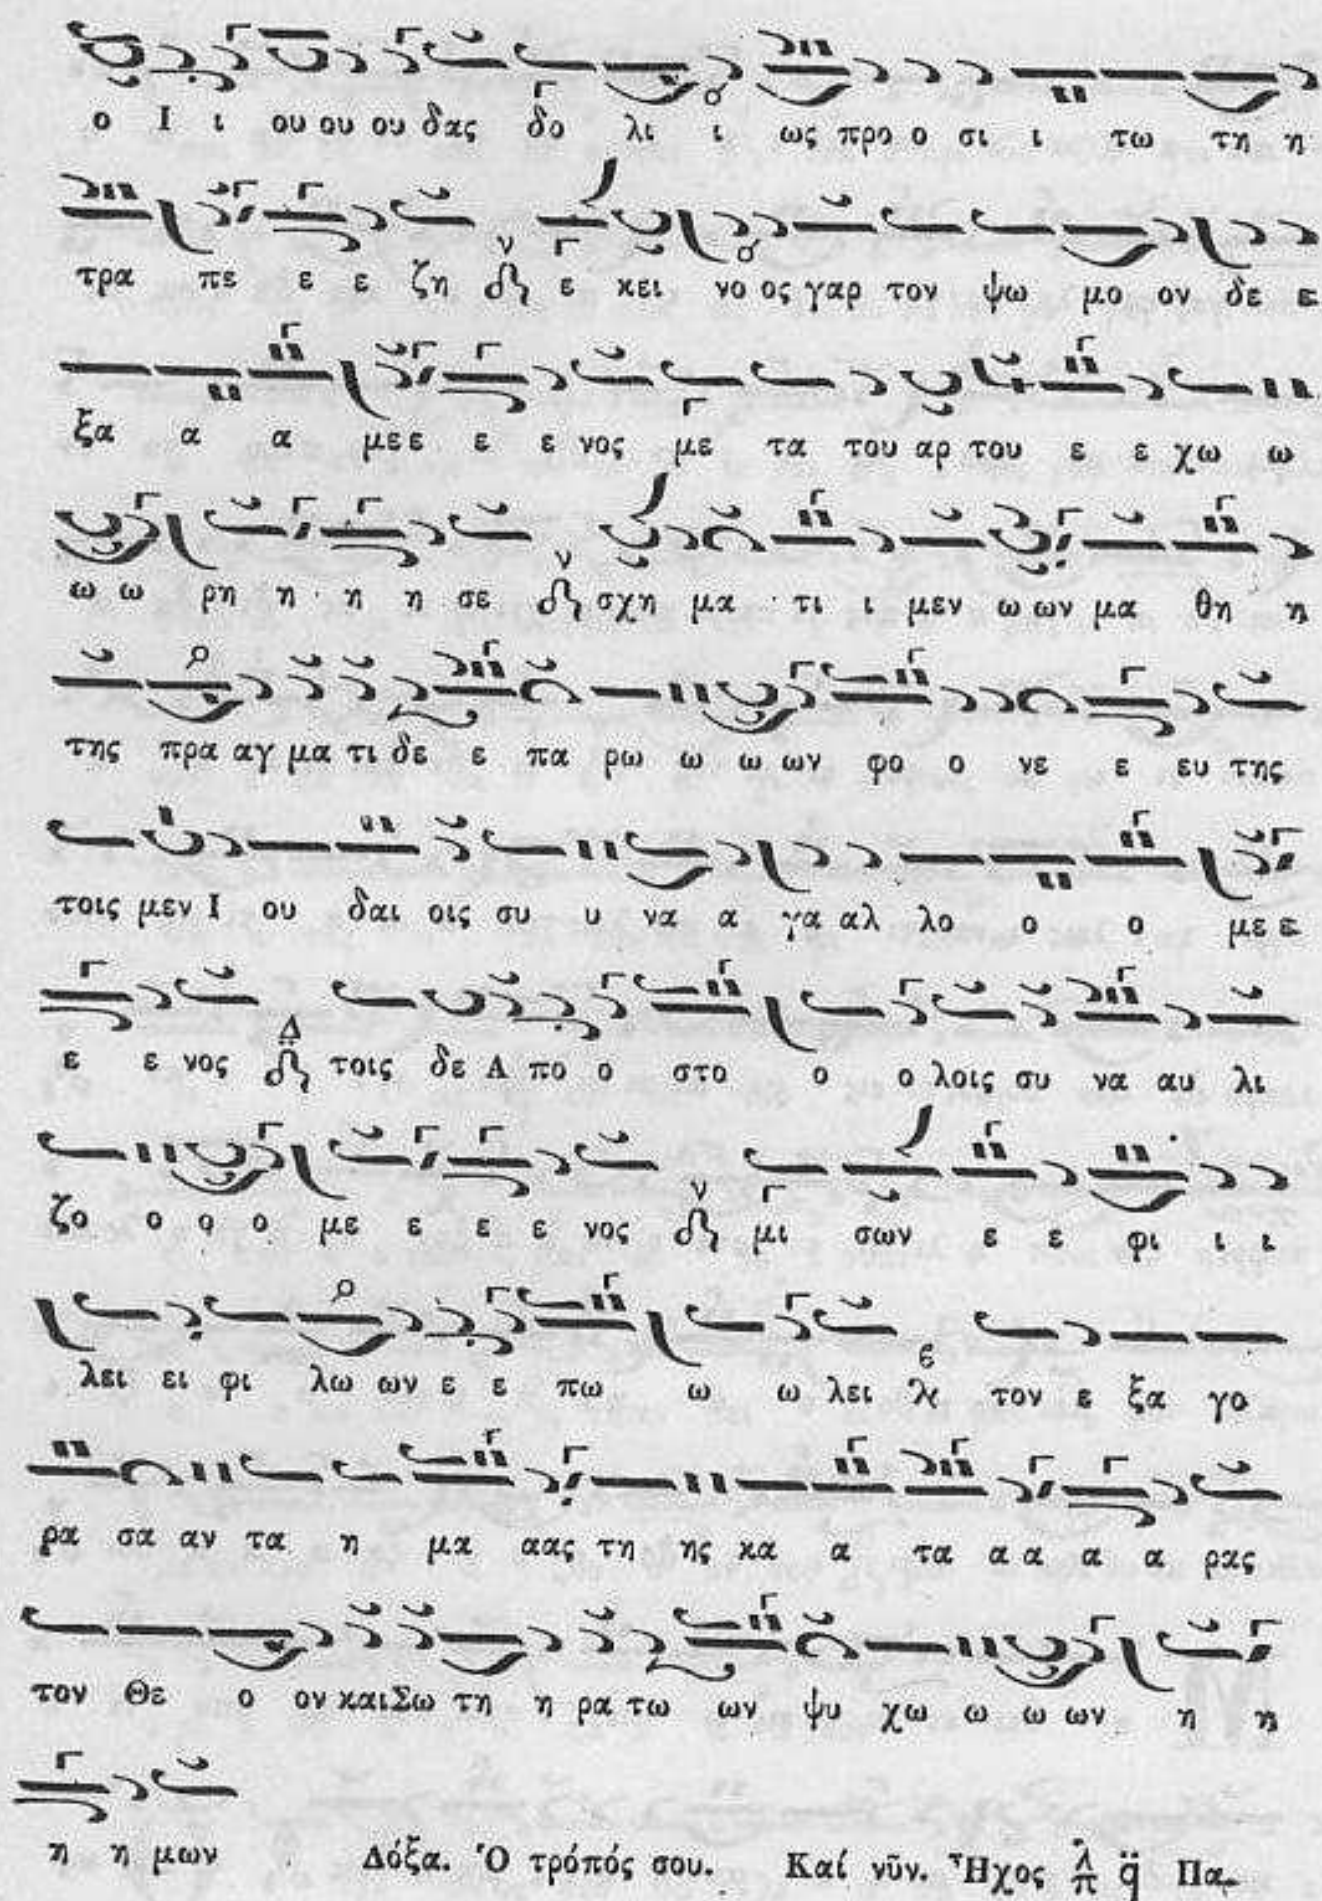 ο Ι ι ου ου ου δας δο λι ι ως προ ο σι ι τω τη η
τρα πε ε ε ζη ε κει νο ος γαρ τον ψω μο ον δε ε
ξα α α με ε ε ε νος με τα του αρ του ε ε χω ω
ω ω ρη η η η σε σχη μα τι ι μεν ω ων μα θη η
της πρα αγ μα τι δε ε πα ρω ω ω ων φο ο νε ε ευ της
τοις μεν Ι ου δαι οις συ υ να α γα αλ λο ο ο με ε
ε ε νος τοις δε Α πο ο στο ο ο λοις συ να αυ λι
ζο ο ο ο με ε ε ε νος μι σων ε ε φι ι ι
λει ει φι λω ων ε ε πω ω ω λει τον ε ξα γο
ρα σα αν τα η μα ας της ης κα α τα α α α α ρας
τον Θε ο ον και Σω τη η ρα τω ων ψυ χω ω ω ων η η
η η μων Δόξα. Ὁ τρόπός σου. Καί νῦν. Ἦχος λ π q̈ Πα-